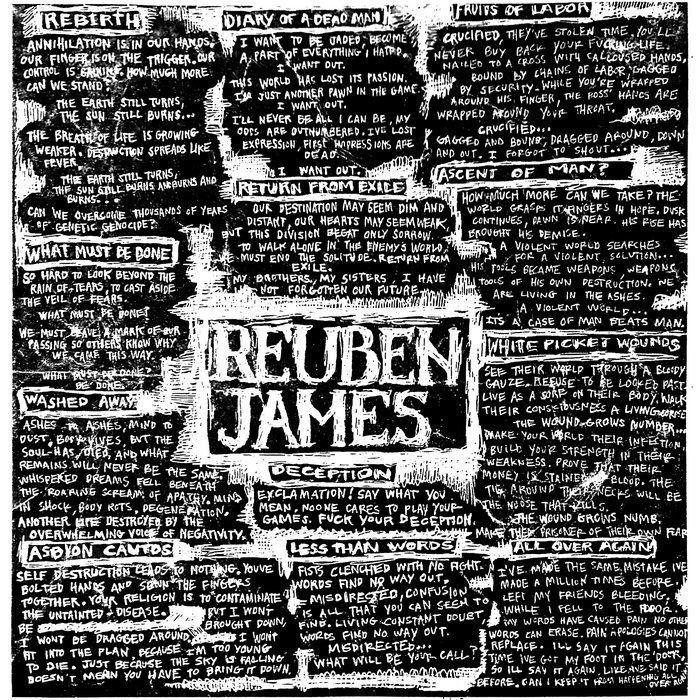 REBIRTH
ANNIHILATION IS IN OUR HANDS.
OUR FINGER IS ON THE TRIGGER. OUR
CONTROL IS HOW MUCH MORE
CAN WE STAND?
THE EARTH STILL TURNS,
THE SUN STILL BURNS...
THE BREATH OF LIFE IS GROWING
WEAKER. DESTRUCTION SPREADS LIKE
FEVER.
THE EARTH STILL TURNS,
THE SUN STILL BURNS AND BURNS AND
BURNS...
CAN WE OVERCOME THOUSANDS OF YEARS
OF GENETIC GENOCIDE?
WHAT MUST BE DONE
SO HARD TO LOOK BEYOND THE
RAIN OF TEARS, TO CAST ASIDE
THE VEIL OF FEARS.
WHAT MUST BE DONE?
WE MUST LEAVE A MARK OF OUR
PASSING SO OTHERS KNOW WHY
WE CAME THIS WAY.
WHAT MUST BE DONE?
BE DONE.
WASHED AWAY
ASHES TO ASHES, MIND TO
DUST. BODY LIVES, BUT THE
SOUL HAS DIED, AND WHAT
REMAINS WILL NEVER BE THE SAME.
WHISPERED DREAMS FELL BENEATH
THE ROARING SCREAM OF APATHY. MIND
IN SHOCK, BODY ROTS, DEGENERATION.
ANOTHER LIFE DESTROYED BY THE
OVERWHELMING VOICE OF NEGATIVITY.
ASDION CAUTOS
SELF DESTRUCTION LEADS TO NOTHING. YOU'VE
BOLTED HANDS AND SEWN THE FINGERS
TOGETHER. YOUR RELIGION IS TO CONTAMINATE
THE UNTAINTED DISEASE. BUT I WON'T
BE BROUGHT DOWN,
I WONT BE DRAGGED AROUND I WON'T
FIT INTO THE PLAN BECAUSE I'M TOO YOUNG
TO DIE. JUST BECAUSE THE SKY IS FALLING
DOESN'T MEAN YOU HAVE TO BRING IT DOWN.
DIARY OF A DEAD MAN
I WANT TO BE JADED, BECOME
A PART OF EVERYTHING I HATED.
I WANT OUT.
THIS WORLD HAS LOST ITS PASSION.
I'M JUST ANOTHER PAWN IN THE GAME.
I WANT OUT.
I'LL NEVER BE ALL I CAN BE, MY
ODDS ARE OUTNUMBERED. I'VE LOST
EXPRESSION, FIRST IMPRESSIONS ARE
DEAD.
I WANT OUT.
RETURN FROM EXILE
OUR DESTINATION MAY SEEM DIM AND
DISTANT, OUR HEARTS MAY SEEM WEAK,
BUT THIS DIVISION BEGAT ONLY SORROW.
TO WALK ALONE IN THE ENEMY'S WORLD,
WE MUST END THE SOLITUDE. RETURN FROM
EXILE.
MY BROTHERS, MY SISTERS, I HAVE
NOT FORGOTTEN OUR FUTURE
REUBEN
JAMES
DECEPTION
EXCLAMATION! SAY WHAT YOU
MEAN, NO ONE CARES TO PLAY YOUR
GAMES. FUCK YOUR DECEPTION.
LESS THAN WORDS
FISTS CLENCHED WITH NO FIGHT.
WORDS FIND NO WAY OUT.
MISDIRECTED, CONFUSION
IS ALL THAT YOU CAN SEEM TO
FIND. LIVING CONSTANT DOUBT
WORDS FIND NO WAY OUT.
MISDIRECTED...
WHAT WILL BE YOUR CALL?
FRUITS OF LABOR
CRUCIFIED, THEY'VE STOLEN TIME, YOU'LL
NEVER BUY BACK YOUR FUCKING LIFE.
NAILED TO A CROSS WITH CALLOUSED HANDS,
BOUND BY CHAINS OF LABOR, GAGGED
BY SECURITY. WHILE YOU'RE WRAPPED
AROUND HIS FINGER, THE BOSS' HANDS ARE
WRAPPED AROUND YOUR THROAT,
CRUCIFIED...
GAGGED AND BOUND, DRAGGED AROUND, DOWN
AND OUT. I FORGOT TO SHOUT...
ASCENT OF MAN?
HOW MUCH MORE CAN WE TAKE? THE
WORLD GRASPS ITS FINGERS IN HOPE. DUSK
CONTINUES, DAWN IS NEAR. HIS RISE HAS
BROUGHT HIS DEMISE.
A VIOLENT WORLD SEARCHES
FOR A VIOLENT SOLUTION...
HIS TOOLS BECAME WEAPONS, WEAPONS,
TOOLS OF HIS OWN DESTRUCTION. WE
ARE LIVING IN THE ASHES.
A VIOLENT WORLD...
ITS A CASE OF MAN BEATS MAN.
WHITE PICKET WOUNDS
SEE THEIR WORLD THROUGH A BLOODY
GAUZE. REFUSE TO BE LOOKED PAST.
LIVE AS A SORE ON THEIR BODY. WALK
THEIR CONSCIOUSNESS A LIVING CORPSE
THE WOUND GROWS NUMBER...
MAKE YOUR WORLD THEIR INFECTION,
BUILD YOUR STRENGTH IN THEIR
WEAKNESS. PROVE THAT THEIR
MONEY IS STAINED BLOOD. THE
TIE AROUND THEIR NECKS WILL BE
THE NOOSE THAT KILLS.
THE WOUND GROWS NUMB.
MAKE THEM PRISONER OF THEIR OWN FEAR
ALL OVER AGAIN
I'VE MADE THE SAME MISTAKE I'VE
MADE A MILLION TIMES BEFORE.
LEFT MY FRIENDS BLEEDING,
WHILE I FELL TO THE FLOOR.
MY WORDS HAVE CAUSED PAIN NO OTHER
WORDS CAN ERASE. PAIN APOLOGIES CANNOT
REPLACE. I'LL SAY IT AGAIN THIS
TIME I'VE GOT MY FOOT IN THE DOOR,
SO ILL SAY IT AGAIN LIKE IVE SAID IT
BEFORE. CAN I KEEP IT FROM HAPPENING ALL
OVER AGAIN